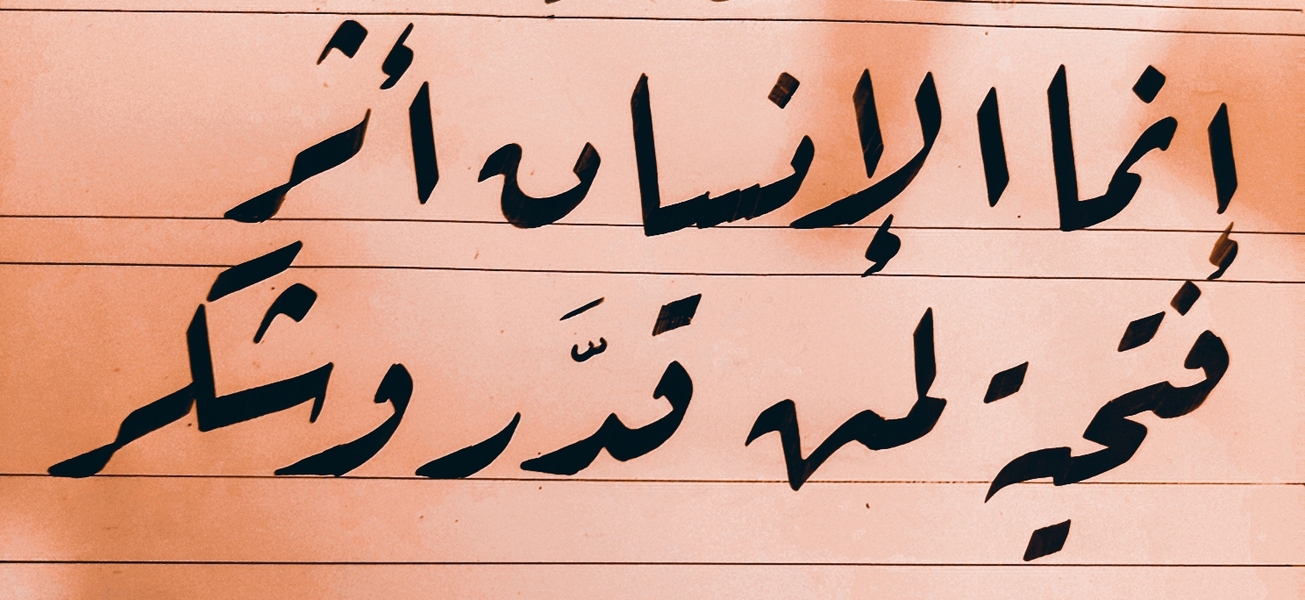 إنما الإنسان أثر
فتحية لمن قدَّر وشكر